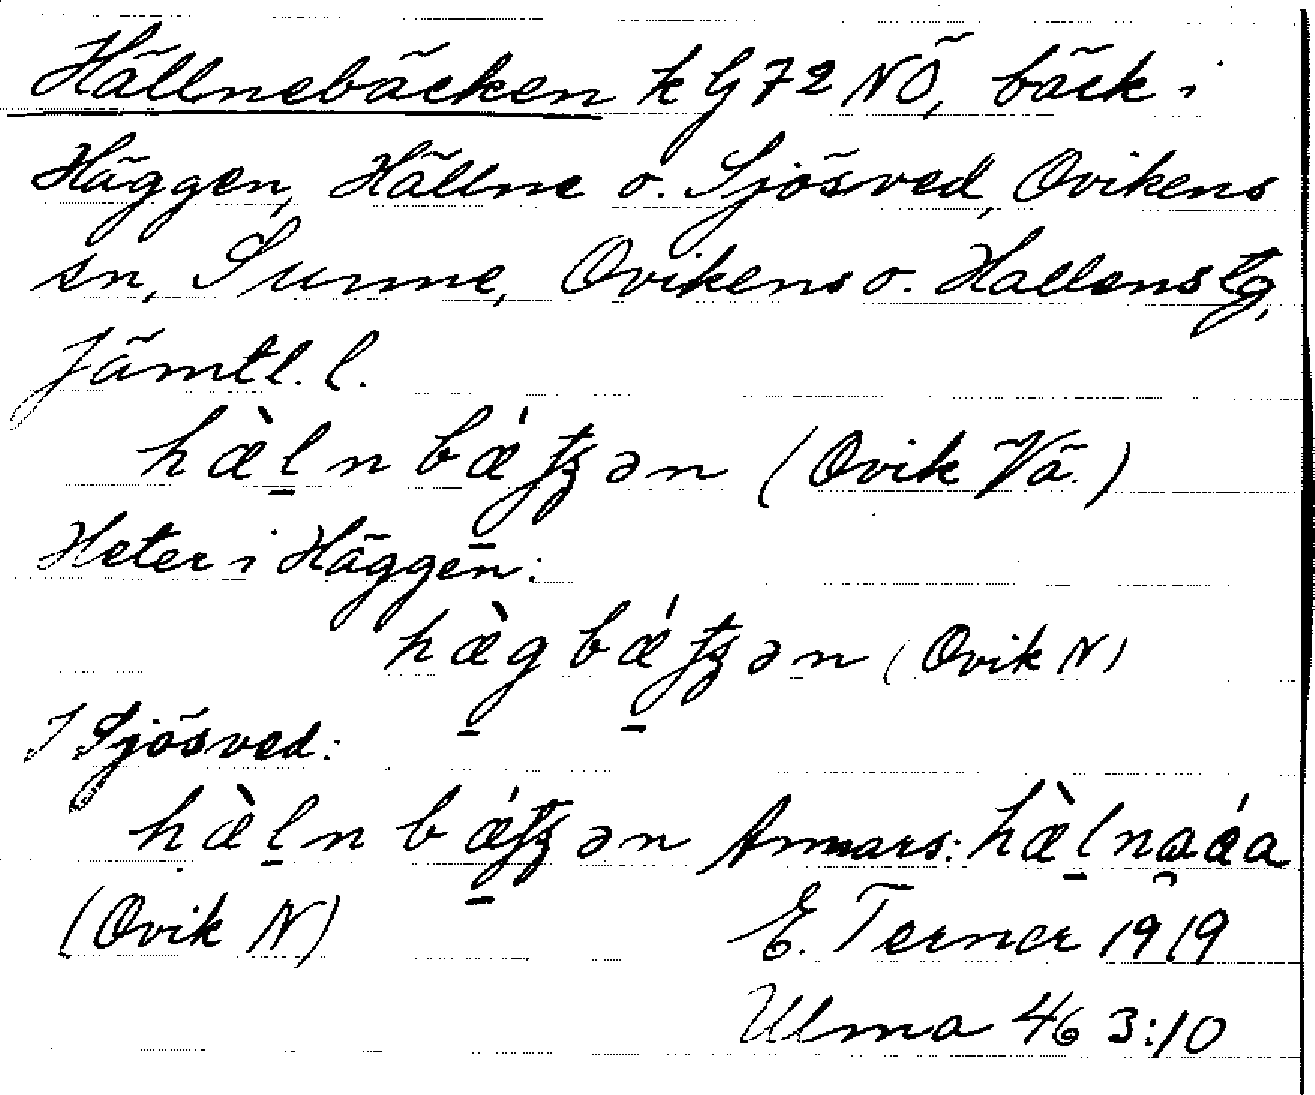 Hällnebäcken k G 72 NÖ, bäck i
Häggen, Hällne o. Sjösved, Ovikens
sn, Sunne, Ovikens o. Hallens tg,
Jämtl. l.
hæ̀l̠n bǽʈʂən (Ovik Vä.)
Heter i Häggen:
hæ̀g bǽʈʂən (Ovik N)
I Sjösved:
hæ̀l̠n bǽʈʂən Annars: hæ̀l̠na̯áa
(Ovik N) E. Terner 1919
Ulma 46 3:10